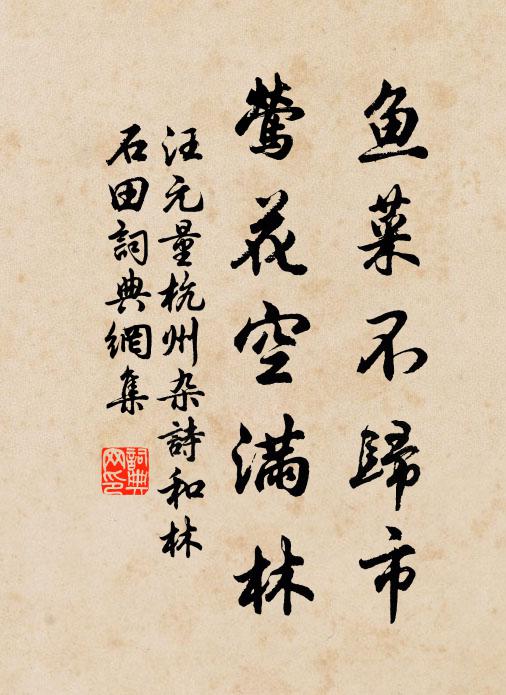 鱼菜不歸市
鶯花空满林
汪元量杭州杂詩和林
石田詞典網集
詞典网印